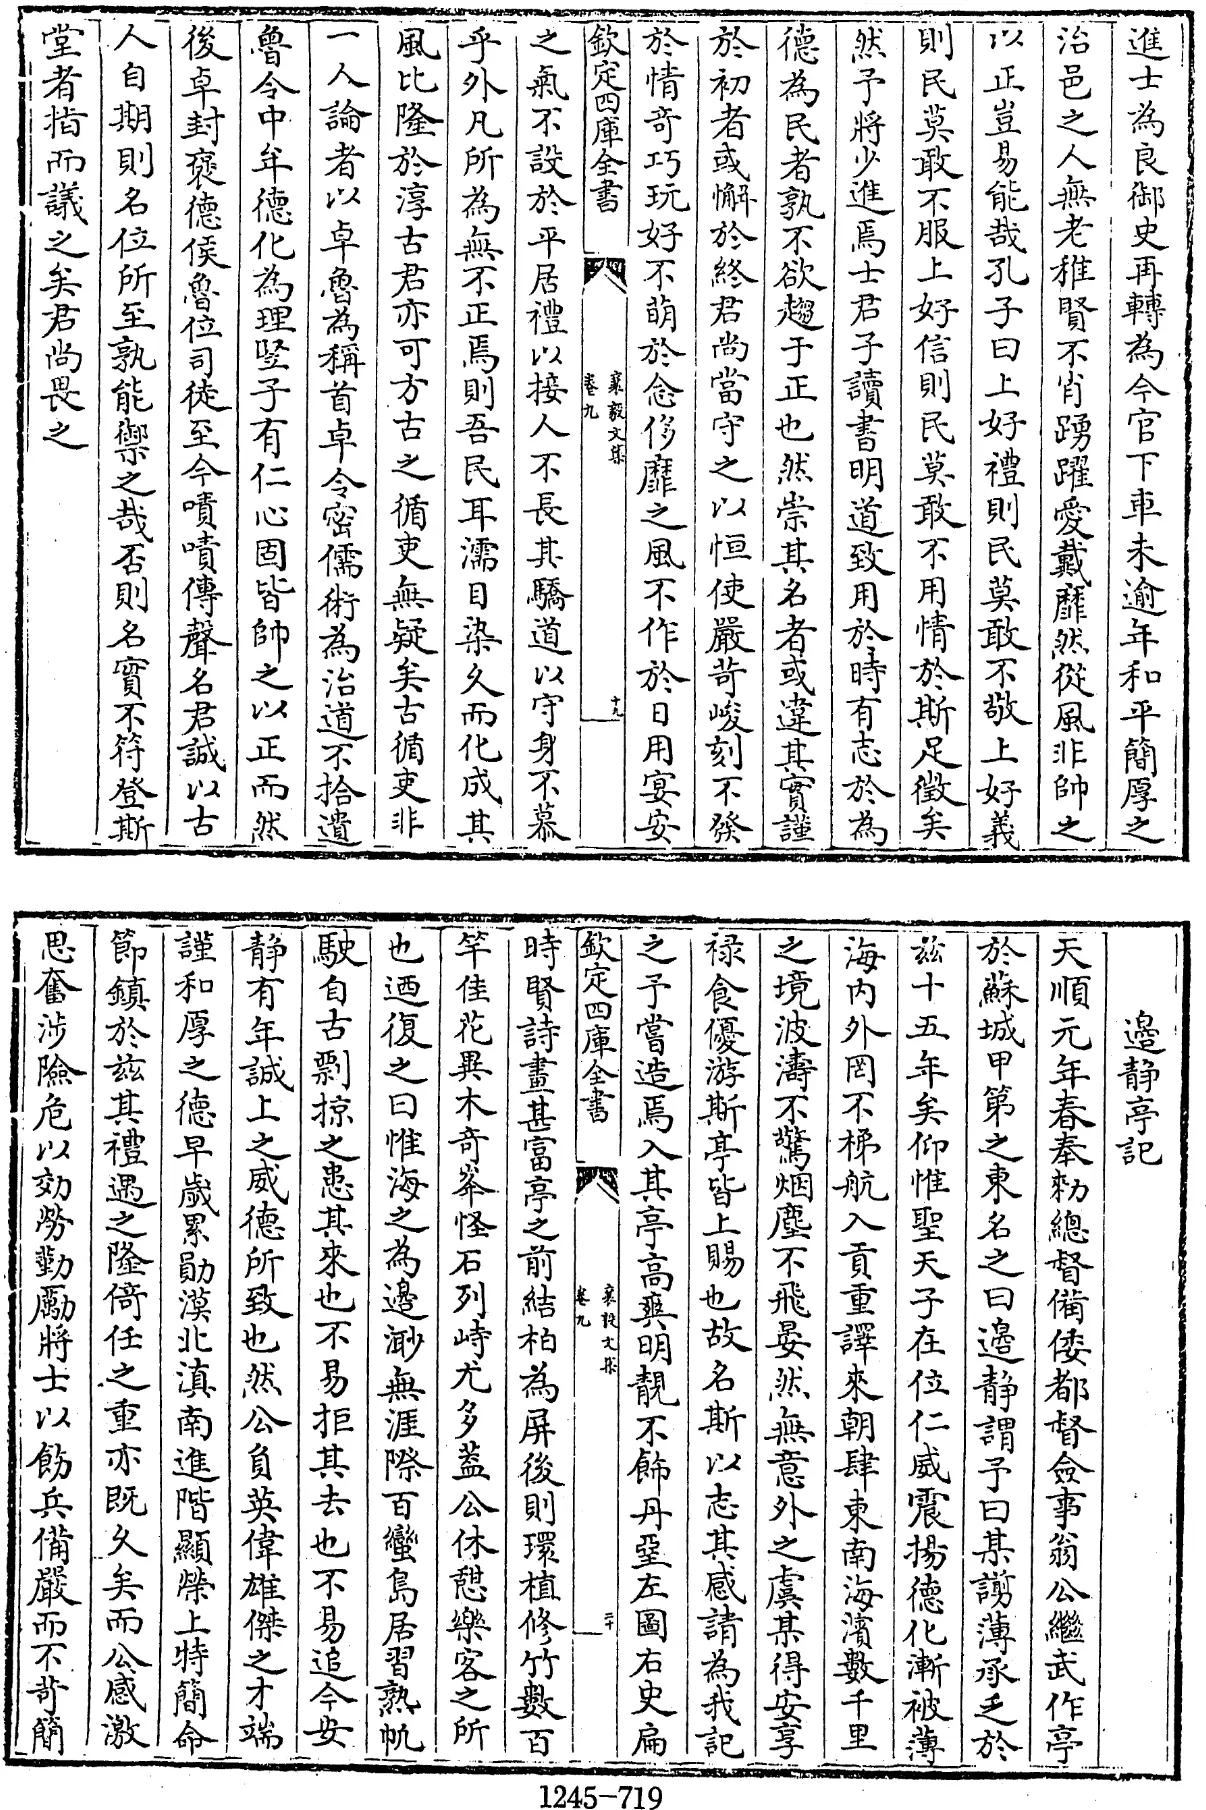 進士為良御史再轉為今官下車未逾年和平簡厚之
治邑之人無老稚賢不肖踴躍愛戴靡然從風非帥之
以正豈易能哉孔子曰上好禮則民莫敢不敬上好義
則民莫敢不服上好信則民莫敢不用情於斯足徵矣
然予將少進焉士君子讀書明道致用於時有志於為
德為民者孰不欲趨于正也然崇其名者或違其實謹
於初者或懈於終君尚當守之以恒使嚴苛峻刻不發
於情奇巧玩好不萌於念侈靡之風不作於日用宴安
欽定四庫全書
襄毅文集
卷九
十九
之氣不設於平居禮以接人不長其驕道以守身不慕
乎外凡所為無不正焉則吾民耳濡目染久而化成其
風比隆於淳古君亦可方古之循吏無疑矣古循吏非
一人論者以卓魯為稱首卓令密儒術為治道不拾遺
魯令中牟德化為理豎子有仁心固皆帥之以正而然
後卓封褒德侯魯位司徒至今嘖嘖傳聲名君誠以古
人自期則名位所至孰能禦之哉否則名實不符登斯
堂者指而議之矣君尚畏之
邊靜亭記
天順元年春奉勑總督備倭都督僉事翁公繼武作亭
於蘇城甲第之東名之曰邊靜謂予曰某謭薄承乏於
兹十五年矣仰惟聖天子在位仁威震揚德化漸被薄
海內外罔不梯航入貢重譯來朝肆東南海濱數千里
之境波濤不驚烟塵不飛晏然無意外之虞某得安享
禄食優游斯亭皆上賜也故名斯以志其感請為我記
之予嘗造焉入其亭高爽明靚不飾丹堊左圖右史扁
欽定四庫全書
襄毅文集
卷九
二十
時賢詩畫甚富亭之前結柏為屏後則環植修竹數百
竿佳花異木奇峯怪石列峙尤多葢公休憩樂客之所
也迺復之曰惟海之為邊渺無涯際百蠻島居習熟帆
駛自古剽掠之患其來也不易拒其去也不易追今安
靜有年誠上之威德所致也然公負英偉雄傑之才端
謹和厚之德早歲累勛漠北滇南進階顯榮上特簡命
節鎮於兹其禮遇之隆倚任之重亦既久矣而公感激
思奮涉險危以効勞勤勵將士以飭兵備嚴而不苛簡
1245-719